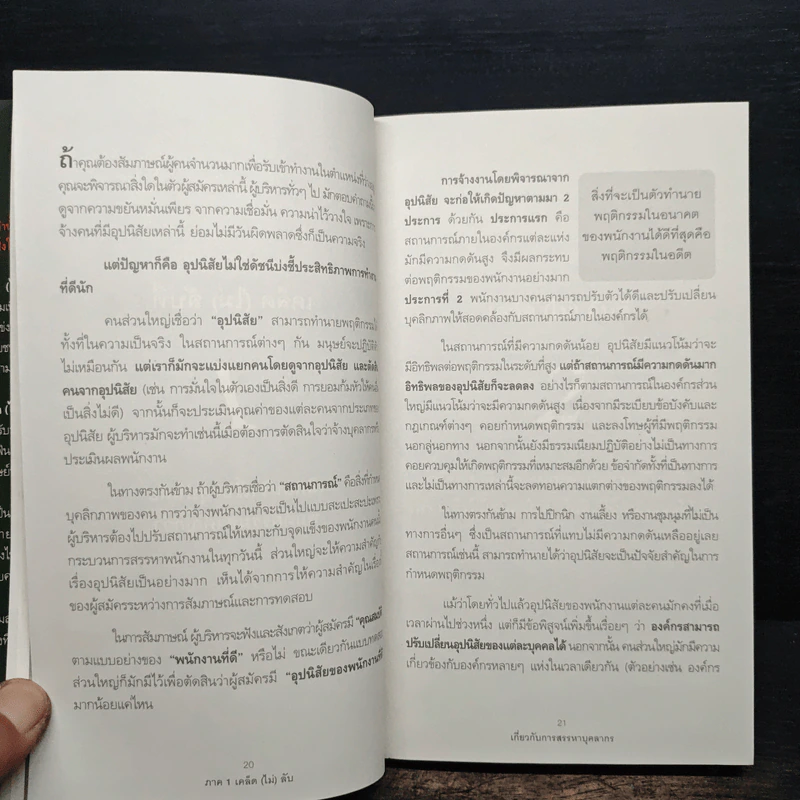 ถ้าคุณต้องสัมภาษณ์ผู้คนจำนวนมากเพื่อรับเข้าทำงานในตำแหน่งที่ว่าง
คุณจะพิจารณาสิ่งใดในตัวผู้สมัครเหล่านี้ ผู้บริหารทั่วๆ ไป มักตอบคำถามนี้
ดูจากความขยันหมั่นเพียร จากความเชื่อมั่น ความน่าไว้วางใจ เพราะการ
จ้างคนที่มีอุปนิสัยเหล่านี้ ย่อมไม่มีวันผิดพลาดซึ่งก็เป็นความจริง
แต่ปัญหาก็คือ อุปนิสัยไม่ใช่ดัชนีบ่งชี้ประสิทธิภาพการทำงาน
ที่ดีนัก
คนส่วนใหญ่เชื่อว่า "อุปนิสัย" สามารถทำนายพฤติกรรมได้
ทั้งที่ในความเป็นจริง ในสถานการณ์ต่างๆ กัน มนุษย์จะปฏิบัติ
ไม่เหมือนกัน แต่เราก็มักจะแบ่งแยกคนโดยดูจากอุปนิสัย และตัดสิน
คนจากอุปนิสัย (เช่น การมั่นใจในตัวเองเป็นสิ่งดี การยอมก้มหัวให้คนอื่น
เป็นสิ่งไม่ดี) จากนั้นก็จะประเมินคุณค่าของแต่ละคนจากประเภทของ
อุปนิสัย ผู้บริหารมักจะทำเช่นนี้เมื่อต้องการตัดสินใจว่าจ้างบุคลากรหรือ
ประเมินผลพนักงาน
ในทางตรงกันข้าม ถ้าผู้บริหารเชื่อว่า "สถานการณ์" คือสิ่งที่กำหนด
บุคลิกภาพของคน การว่าจ้างพนักงานก็จะเป็นไปแบบสะเปะสะปะ
ผู้บริหารต้องไปปรับสถานการณ์ให้เหมาะกับจุดแข็งของพนักงาน
กระบวนการสรรหาพนักงานในทุกวันนี้ ส่วนใหญ่จะให้ความสำคัญกับ
เรื่องอุปนิสัยเป็นอย่างมาก เห็นได้จากการให้ความสำคัญในเรื่อง
ของผู้สมัครระหว่างการสัมภาษณ์และการทดสอบ
ในการสัมภาษณ์ ผู้บริหารจะฟังและสังเกตว่าผู้สมัครมี
ตามแบบอย่างของ "พนักงานที่ดี" หรือไม่ ขณะเดียวกันแบบทดสอบ
ส่วนใหญ่ก็มักมีไว้เพื่อตัดสินว่าผู้สมัครมี "อุปนิสัยของพนักงานที่ดี"
มากน้อยแค่ไหน
20
ภาค 1 เคล็ด (ไม่) ลับ
การจ้างงานโดยพิจารณาจาก
อุปนิสัย จะก่อให้เกิดปัญหาตามมา 2
ประการ ด้วยกัน ประการแรก คือ
สถานการณ์ภายในองค์กรแต่ละแห่ง
มักมีความกดดันสูง จึงมีผลกระทบ
ต่อพฤติกรรมของพนักงานอย่างมาก
ประการที่ 2 พนักงานบางคนสามารถปรับตัวได้ดีและปรับเปลี่ยน
บุคลิกภาพให้สอดคล้องกับสถานการณ์ภายในองค์กรได้
สิ่งที่จะเป็นตัวทำนาย
พฤติกรรมในอนาคต
ของพนักงานได้ดีที่สุดคือ
พฤติกรรมในอดีต
ในสถานการณ์ที่มีความกดดันน้อย อุปนิสัยมีแนวโน้มว่าจะ
มีอิทธิพลต่อพฤติกรรมในระดับที่สูง แต่ถ้าสถานการณ์มีความกดดันมาก
อิทธิพลของอุปนิสัยก็จะลดลง อย่างไรก็ตามสถานการณ์ในองค์กรส่วน
ใหญ่มีแนวโน้มว่าจะมีความกดดันสูง เนื่องจากมีระเบียบข้อบังคับและ
กฎเกณฑ์ต่างๆ คอยกำหนดพฤติกรรม และลงโทษผู้ที่มีพฤติกรรม
นอกลู่นอกทาง นอกจากนั้นยังมีธรรมเนียมปฏิบัติอย่างไม่เป็นทางการ
คอยควบคุมให้เกิดพฤติกรรมที่เหมาะสมอีกด้วย ข้อจำกัดทั้งที่เป็นทางการ
และไม่เป็นทางการเหล่านี้จะลดทอนความแตกต่างของพฤติกรรมลงได้
ในทางตรงกันข้าม การไปปิกนิก งานเลี้ยง หรืองานชุมนุมที่ไม่เป็น
ทางการอื่นๆ ซึ่งเป็นสถานการณ์ที่แทบไม่มีความกดดันเหลืออยู่เลย
สถานการณ์เช่นนี้ สามารถทำนายได้ว่าอุปนิสัยจะเป็นปัจจัยสำคัญในการ
กำหนดพฤติกรรม
แม้ว่าโดยทั่วไปแล้วอุปนิสัยของพนักงานแต่ละคนมักคงที่เมื่อ
เวลาผ่านไปช่วงหนึ่ง แต่ก็มีข้อพิสูจน์เพิ่มขึ้นเรื่อยๆ ว่า องค์กรสามารถ
ปรับเปลี่ยนอุปนิสัยของแต่ละบุคคลได้ นอกจากนั้น คนส่วนใหญ่มักมีความ
เกี่ยวข้องกับองค์กรหลายๆ แห่งในเวลาเดียวกัน (ตัวอย่างเช่น องค์กร
21
เกี่ยวกับการสรรหาบุคลากร